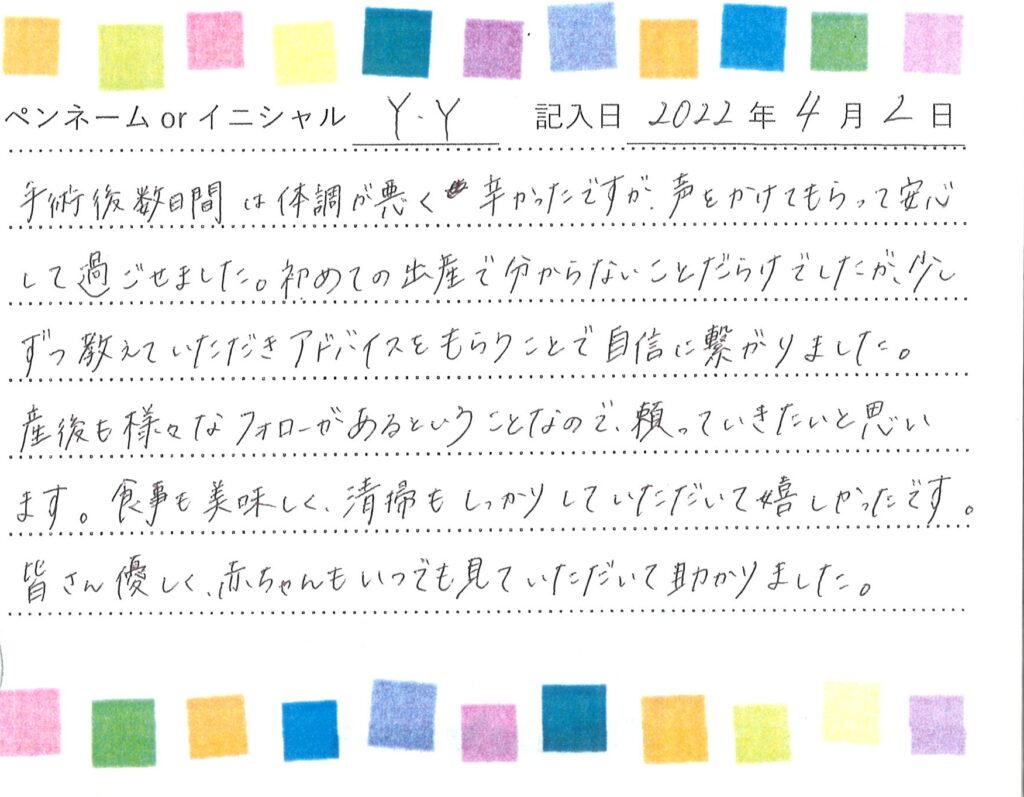 ペンネーム or イニシャル Y・Y 記入日 2022年4月2日
手術後数日間は体調が悪く辛かったですが、声をかけてもらって安心
して過ごせました。初めての出産で分からないことだらけでしたが、少し
ずつ教えていただきアドバイスをもらうことで自信に繋がりました。
産後も様々なフォローがあるということなので、頼っていきたいと思い
ます。食事も美味しく、清掃もしっかりしていただいて嬉しかったです。
皆さん優しく、赤ちゃんもいつでも見ていただいて助かりました。